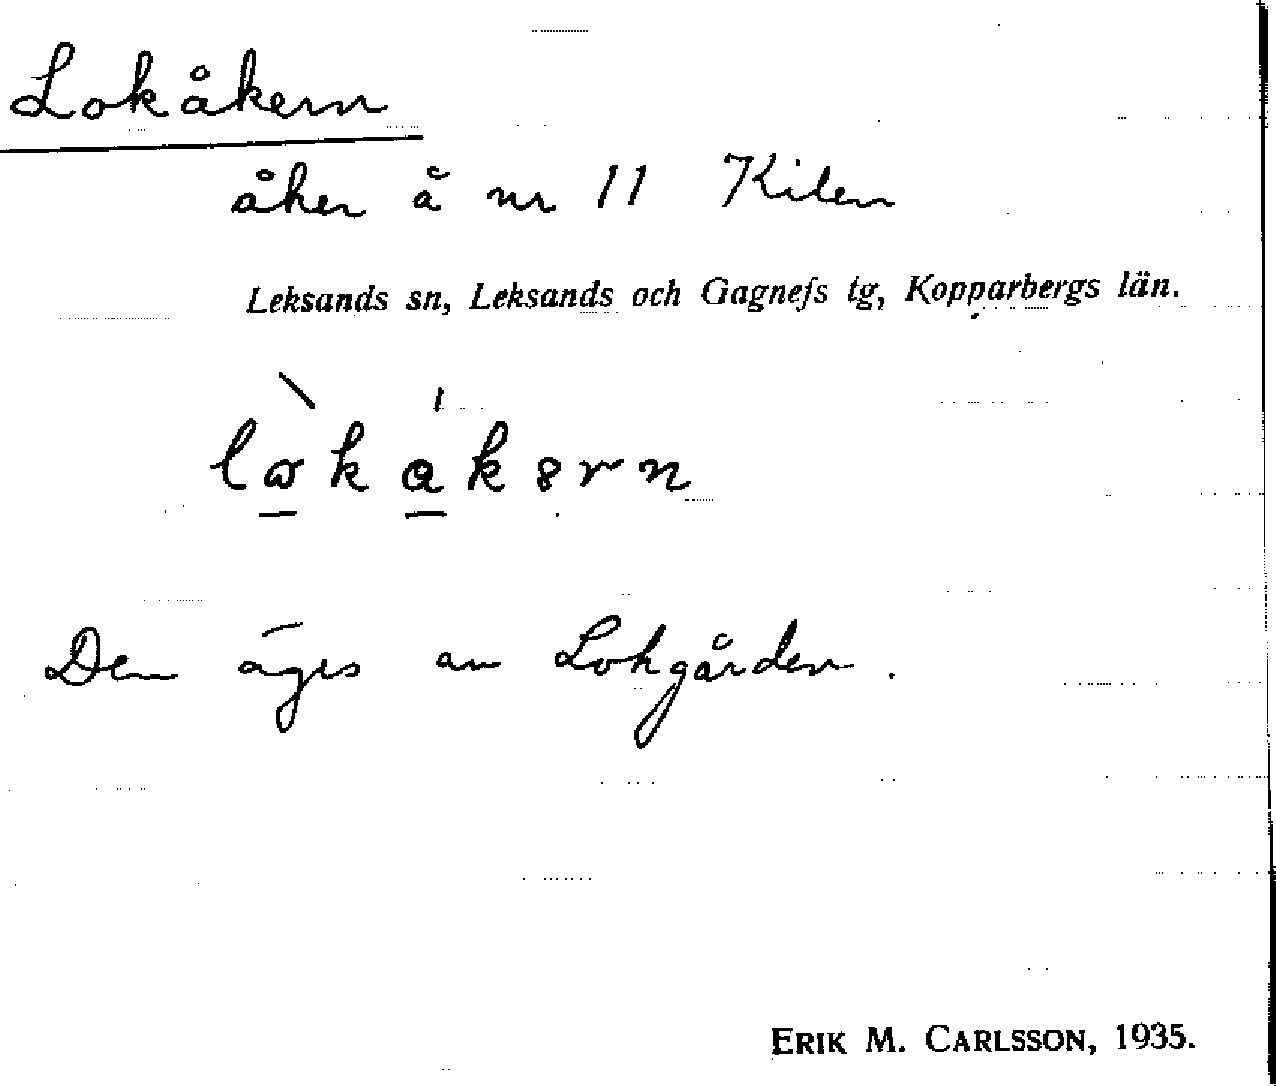 Lokåkern
åker å nr 11 Kilen
Leksands sn, Leksands och Gagnefs tg, Kopparbergs län.
Den äges av Lokgården.
ERIK M. CARLSSON, 1935.